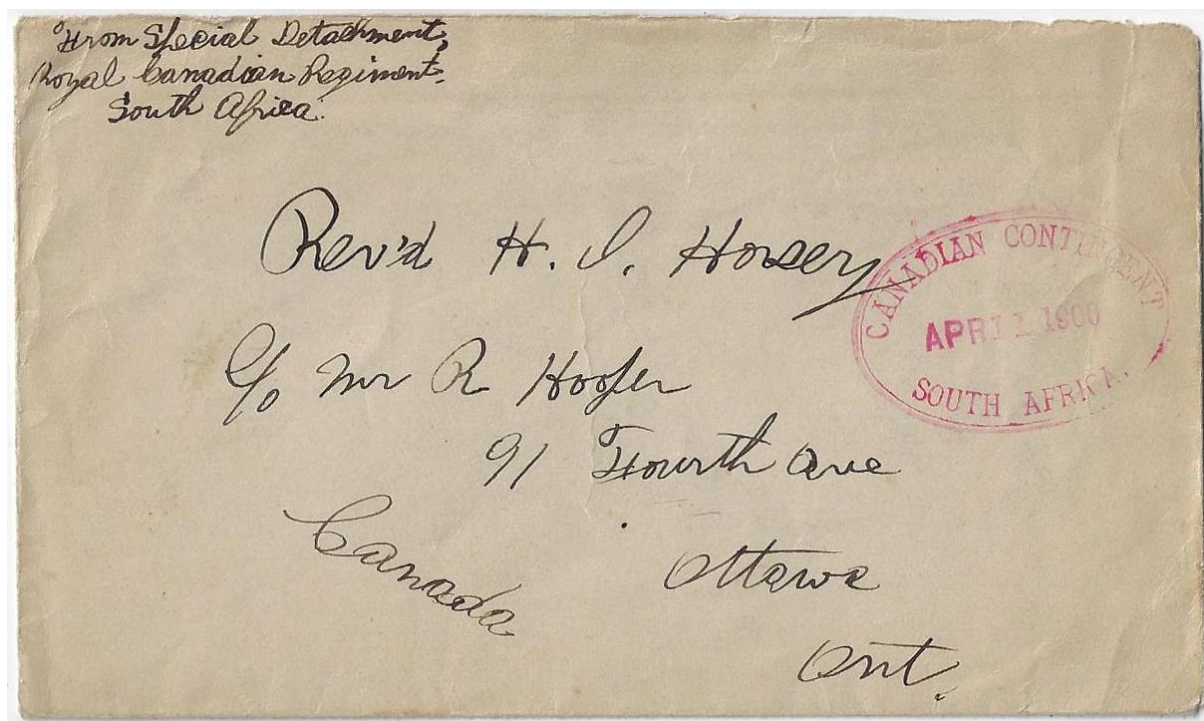 From Special Detachment,
Royal Canadian Regiment.
South Africa.
Rev'd H. I. Horsey
CANADIAN CONTINGENT
APRIL 1 1900
SOUTH AFRICA.
C/o Mr R Hooper
91 Fourth Ave
Ottawa
Canada
Ont.